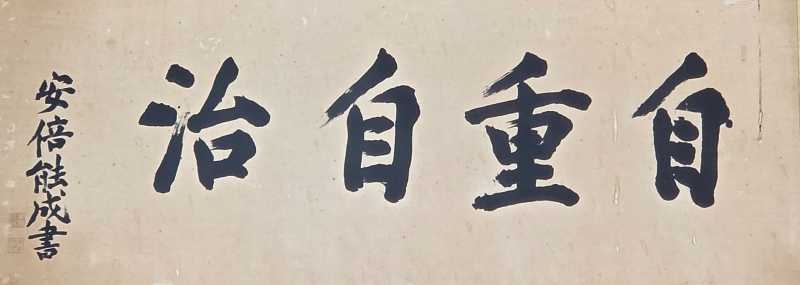 自重自治
安倍能成書